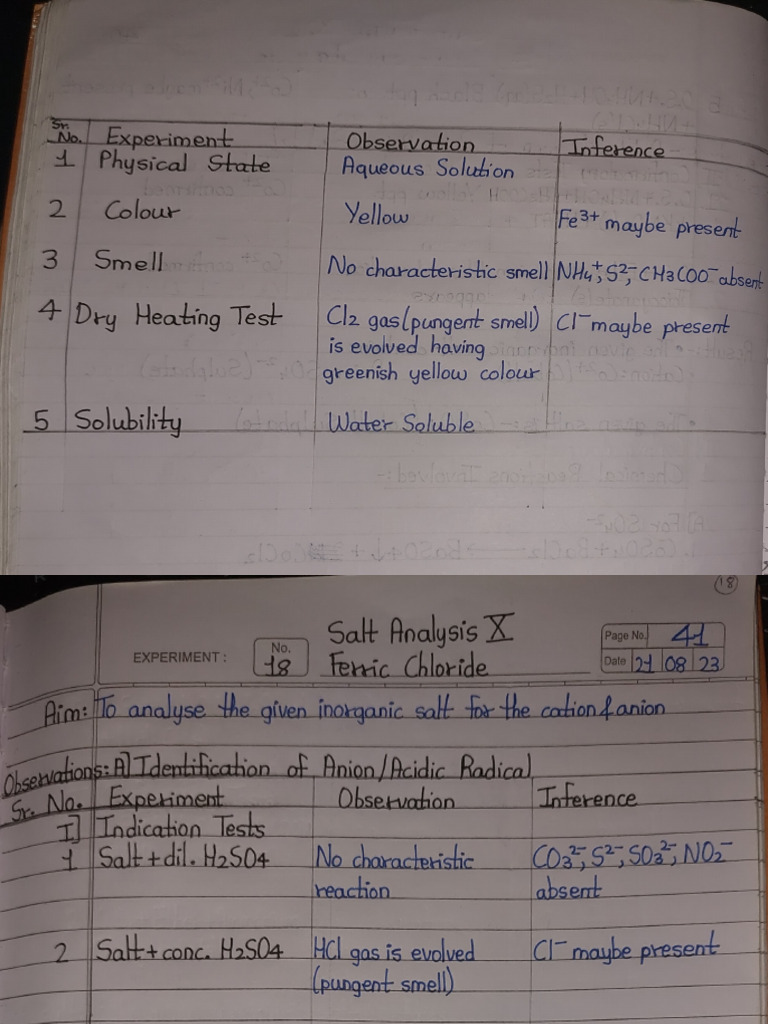 Sr. No. Experiment Observation Inference
1 Physical State Aqueous Solution
2 Colour Yellow Fe3+ maybe present
3 Smell No characteristic smell NH4+, S2-, CH3COO- absent
4 Dry Heating Test Cl2 gas (pungent smell) Cl- maybe present
is evolved having
greenish yellow colour
5 Solubility Water Soluble
18
Salt Analysis X
EXPERIMENT: No. 18 Ferric Chloride
Page No. 41
Date 21 08 23
Aim: To analyse the given inorganic salt for the cation & anion
Observations: A] Identification of Anion/Acidic Radical
Sr. No. Experiment Observation Inference
I] Indication Tests
1 Salt + dil. H2SO4 No characteristic CO32-, S2-, SO32-, NO2-
reaction absent
2 Salt + conc. H2SO4 HCl gas is evolved Cl- maybe present
(pungent smell)